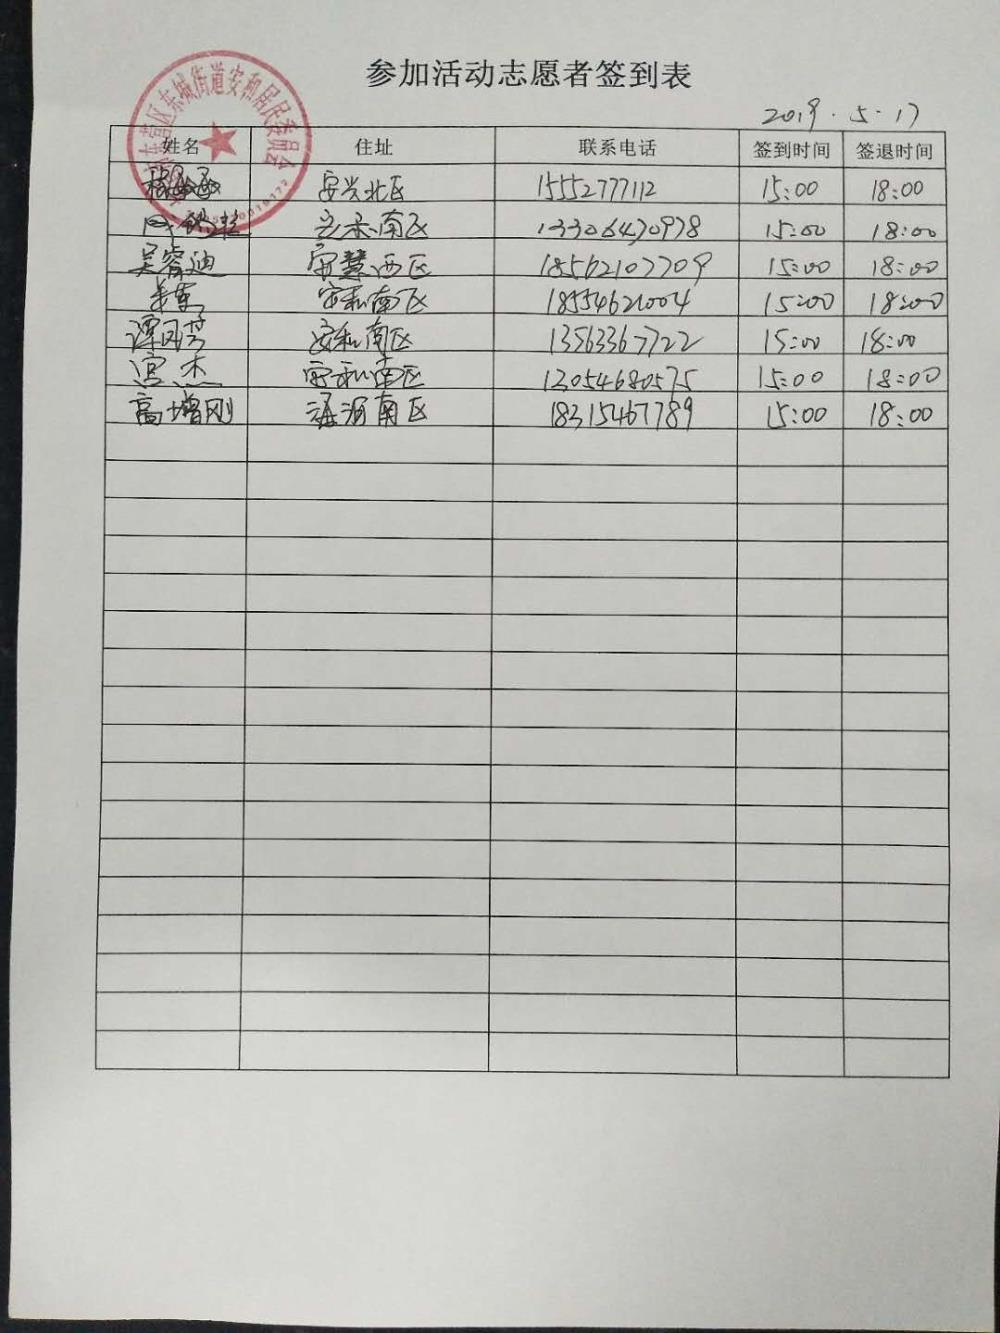 参加活动志愿者签到表
2019.5.17
姓名 住址 联系电话 签到时间 签退时间
安兴北区 15552777112 15:00 18:00
南区 13306470978 15:00 18:00
吴睿迪 安慧西区 18562107709 15:00 18:00
安和南区 18554621004 15:00 18:00
安和南区 13563367722 15:00 18:00
宫杰 安和南区 13054680575 15:00 18:00
高增刚 南区 18315467789 15:00 18:00
东城街道安和居民委员会